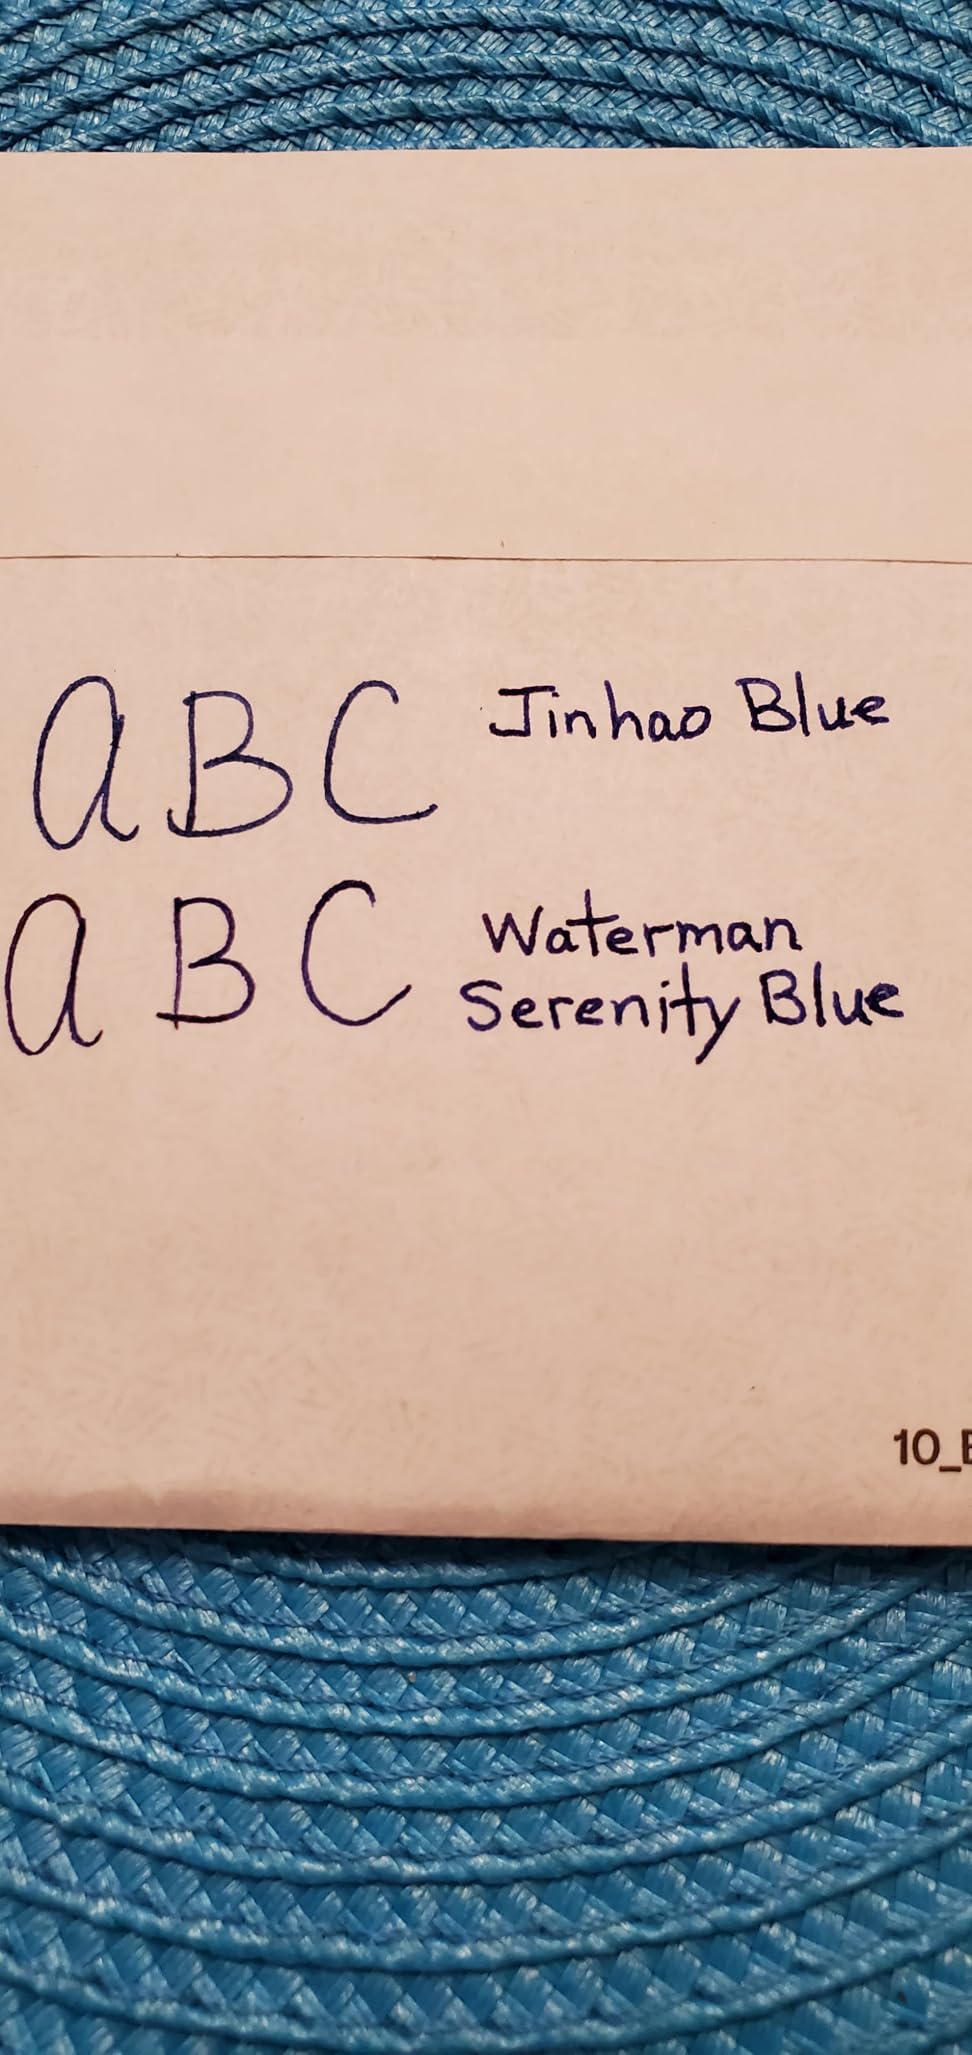 a B C Jinhao Blue
a B C Waterman
Serenity Blue
10_